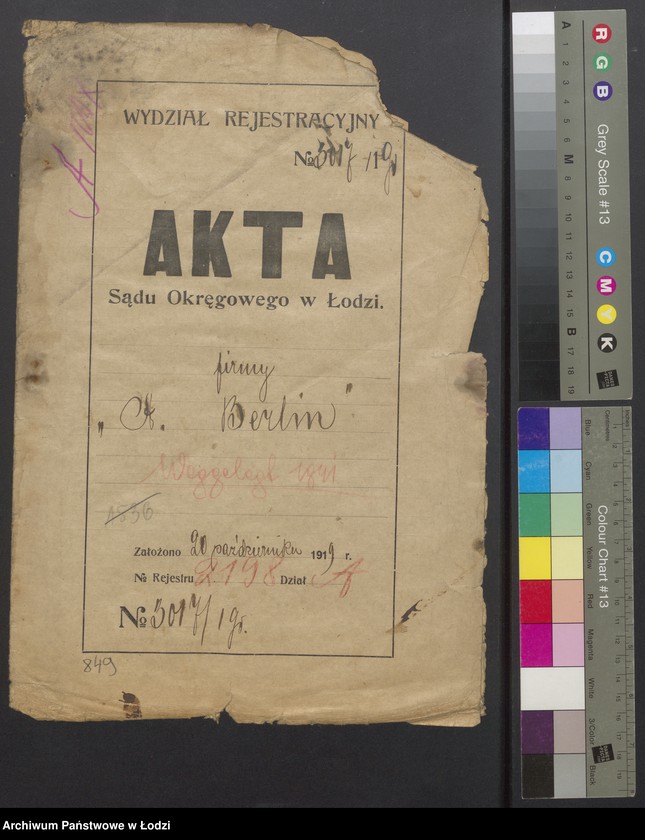 WYDZIAŁ REJESTRACYJNY
№ 3017/19
AKTA
Sądu Okręgowego w Łodzi.
firmy
„A. Berlin"
Weggelegt 1941
A836
Założono 20 października 1919 r.
№ Rejestru 2198 Dział A
№ 3017/19r.
849
R G B
Grey Scale #13
C M Y K
A 1 2 3 4 5 6 M 8 9 10 11 12 13 14 15 B 17 18 19
Colour Chart #13
Blue
Cyan
Green
Yellow
Red
Magenta
White
3/Color
Black
Centimetres
Inches
Archiwum Państwowe w Łodzi